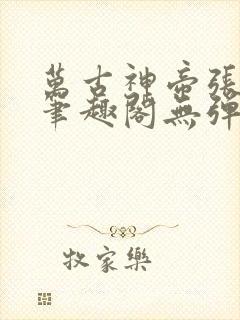 萬古神帝張
筆趣閣無彈
牧家樂